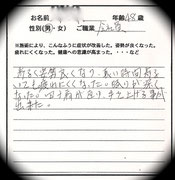 お名前 年齢 48 歳
性別(男・女) ご職業 会社員
※施術により、こんなふうに症状が改善した。姿勢が良くなった。
疲れにくくなった。健康への意識が高まった。・・・など
姿勢良くなり、長い時間
いても疲れにくくなった。眠りが深く
なった。四十肩が 手を上げる事が
出来た。